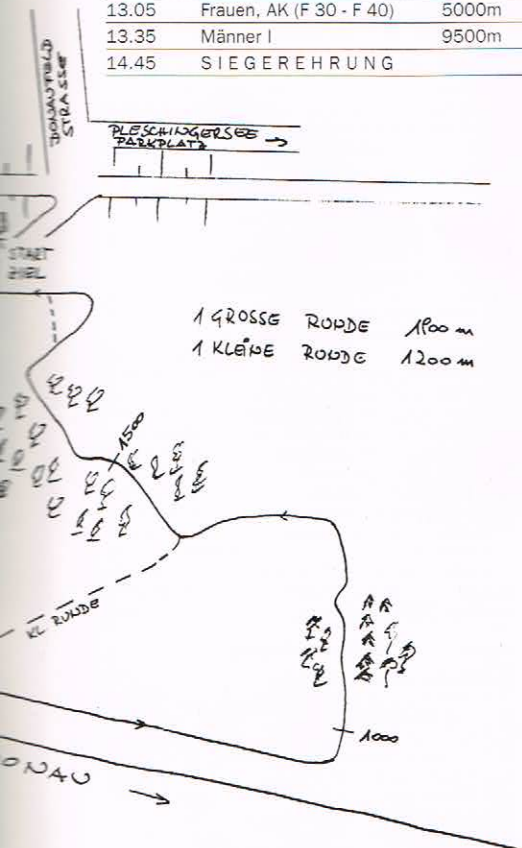 13.05 Frauen, AK (F 30 - F 40) 5000m
13.35 Männer I 9500m
14.45 SIEGEREHRUNG
DONAUFELD
STRASSE
PLESCHINGERSEE →
PARKPLATZ
START
ZIEL
1 GROSSE RUNDE 1900 m
1 KLEINE RUNDE 1200 m
1500
KL RUNDE
1000
ONAU →